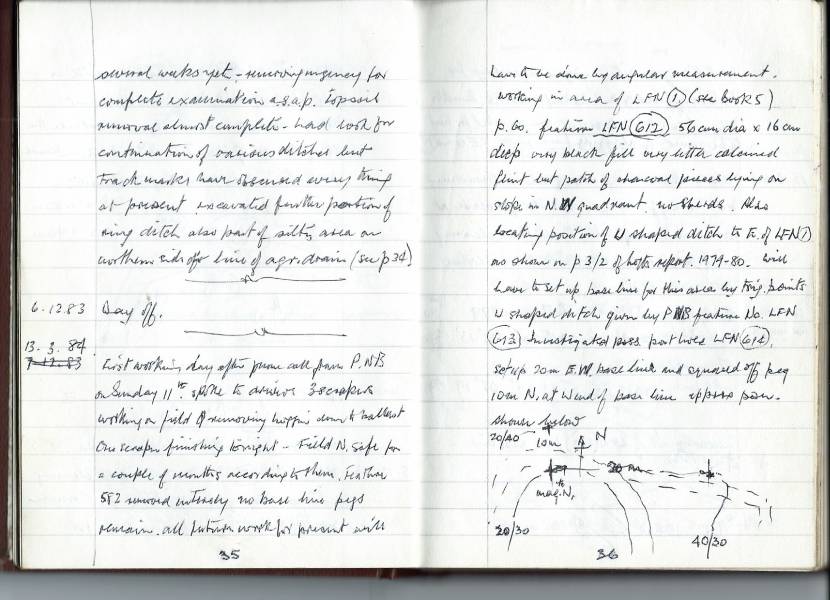 several weeks yet - removing urgency for
complete examination a.s.a.p. topsoil
removal almost complete - had look for
continuation of various ditches but
track marks have obscured every thing
at present excavated further portion of
ring ditch also part of silty area on
northern side of line of agr. drain (see p 34)
6.12.83 Day off.
13.3.84
7.12.83
First working day after phone call from P.NB
on Sunday 11th. spoke to drivers 3 scrapers
working on field removing hoggin down to ballast
One scraper finishing tonight - Field N. safe for
a couple of months according to them. Feature
582 removed entirely no base line pegs
remain. all future work for present will
35
have to be done by angular measurement.
working in area of LFN (1) (see book 5)
p. 60. feature LFN (612) 56cm dia x 16cm
deep very black fill very little calcined
flint but patch of charcoal pieces lying on
slope in N.W quadrant. no sherds. Also
locating position of U shaped ditch to E. of LFN (1)
as shown on p 3/2 of report. 1979-80. will
have to set up base line for this area by trig. points
U shaped ditch given by P NB feature No. LFN
(613) Investigated poss post hole LFN (614)
set up 20m E.W. base line and squared off peg
10m N. at W end of base line approx posn.
shown below
20/40 10m N
20m
mag. N.
20/30
40/30
36